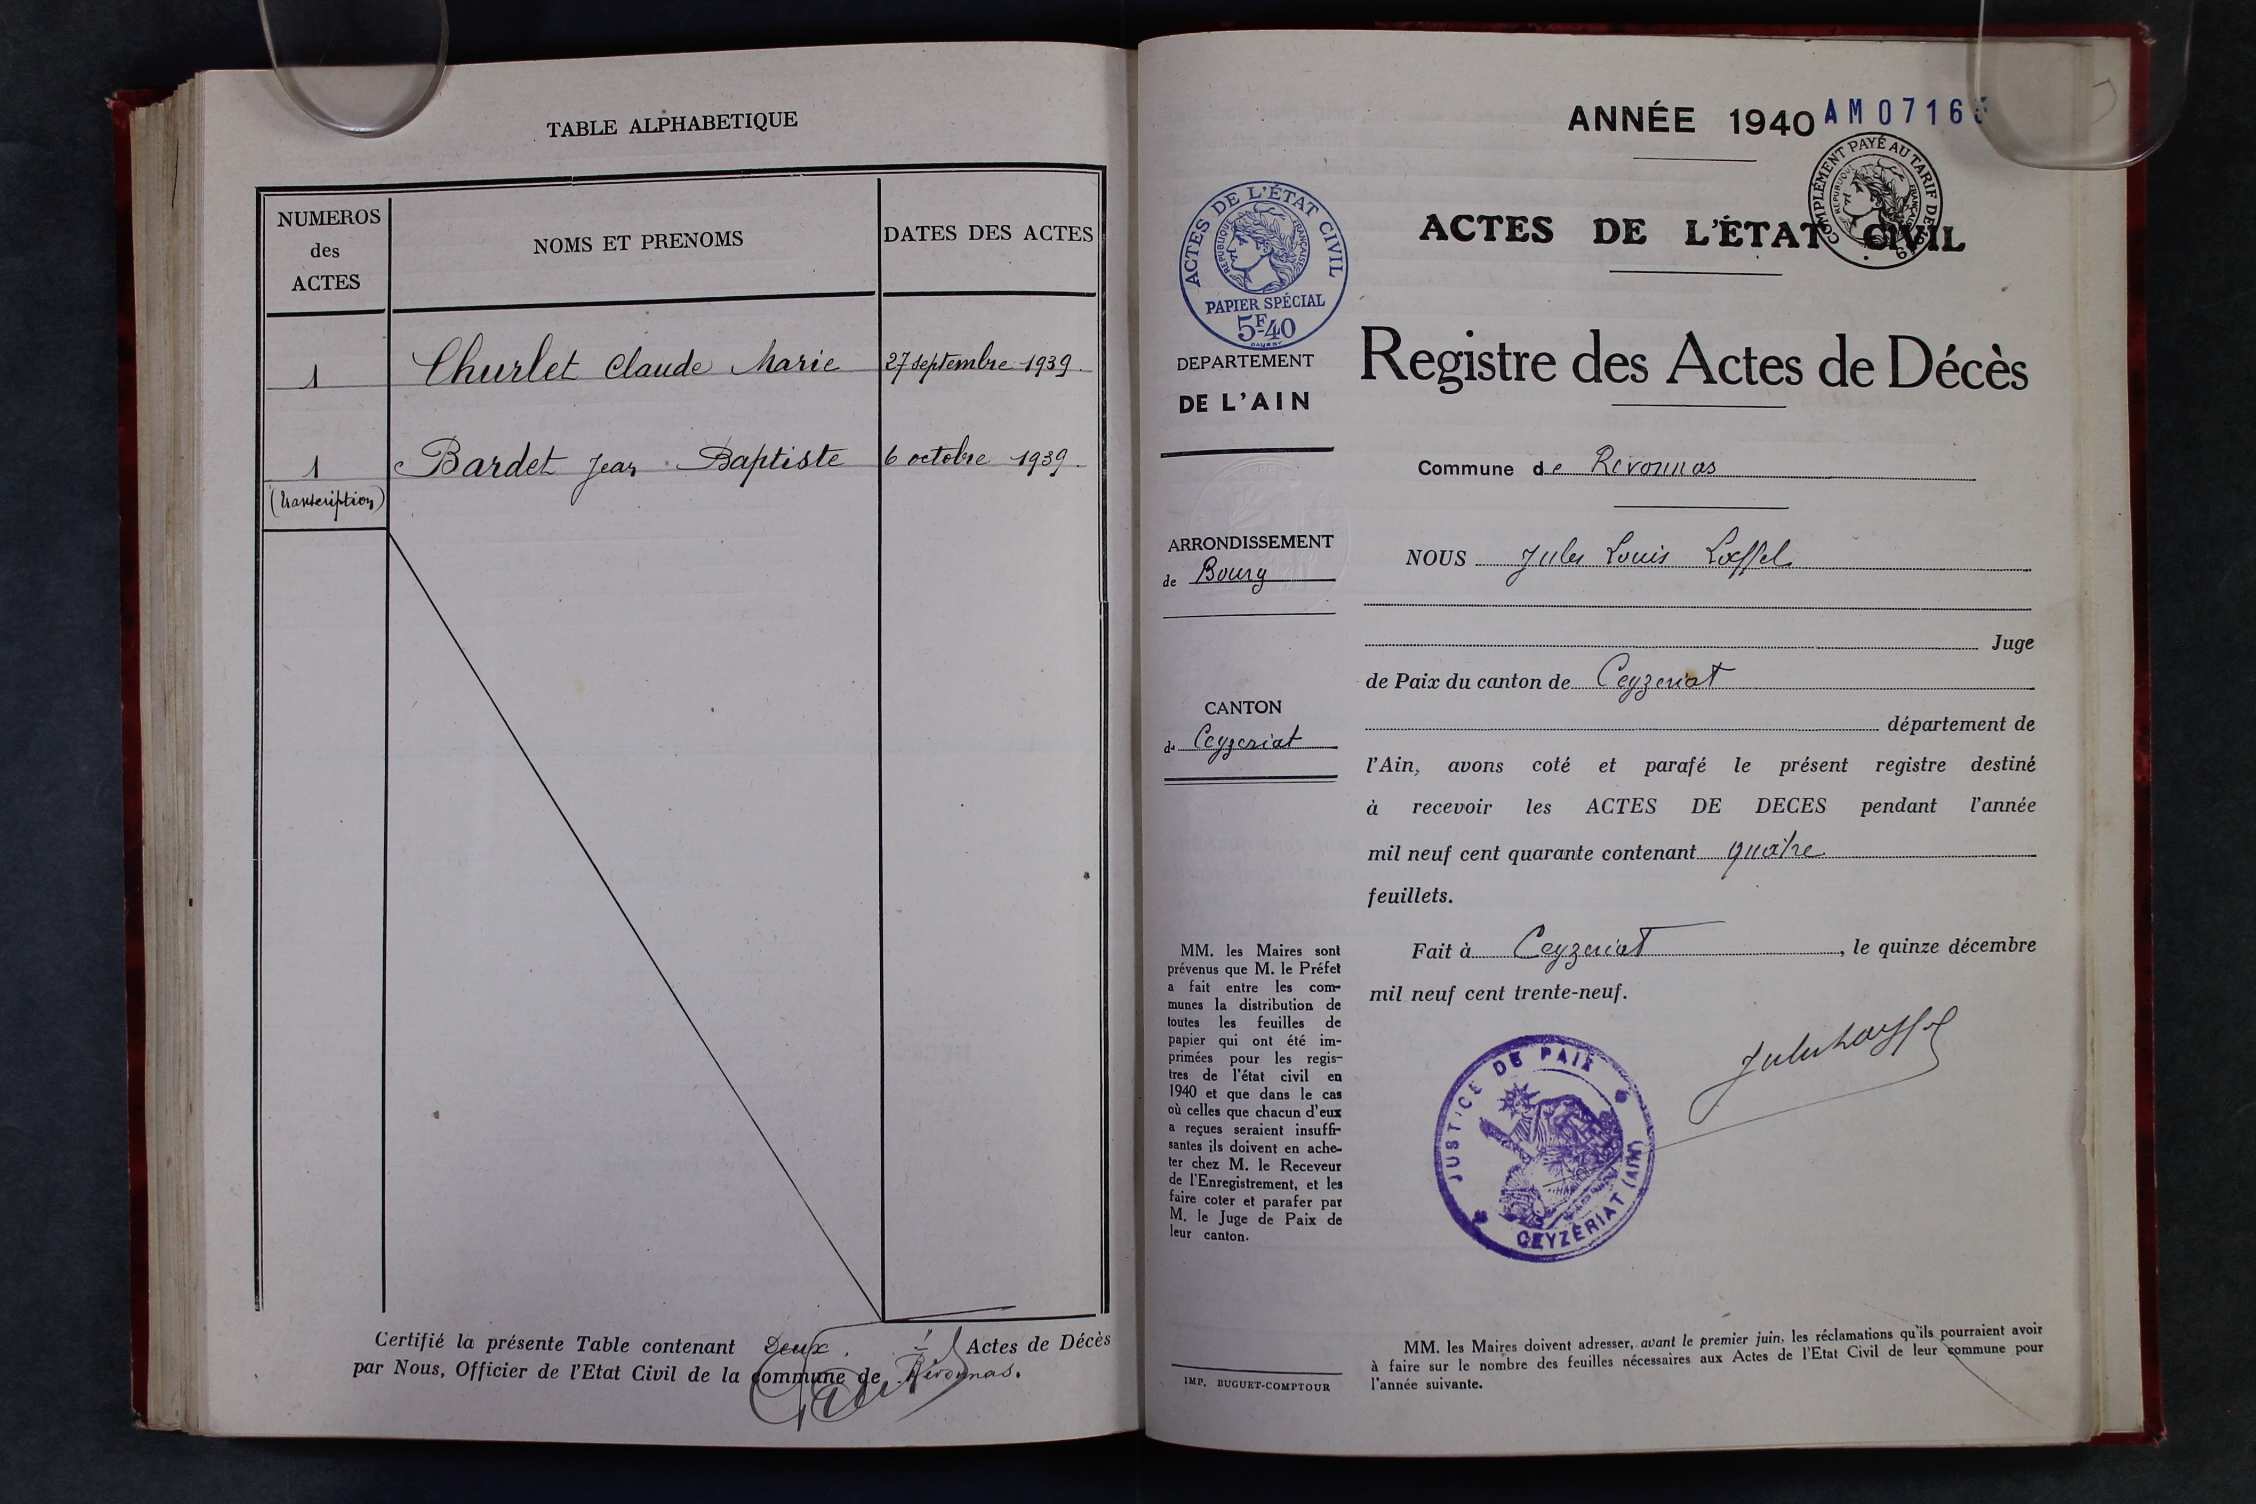 TABLE ALPHABETIQUE
NUMEROS
des
ACTES
NOMS ET PRENOMS
DATES DES ACTES
1 Churlet Claude Marie 27 septembre 1939.
1 Bardet Jean Baptiste 6 octobre 1939.
(transcription)
Certifié la présente Table contenant Deux Actes de Décès
par Nous, Officier de l'Etat Civil de la commune de Revonnas.
ANNÉE 1940
AM0716
COMPLÉMENT PAYÉ AU TARIF DE 19
REPUBLIQUE FRANÇAISE
ACTES DE L'ÉTAT CIVIL
ACTES DE L'ÉTAT CIVIL
REPUBLIQUE FRANÇAISE
PAPIER SPÉCIAL
5F.40
Registre des Actes de Décès
DEPARTEMENT
DE L'AIN
Commune de Revonnas
ARRONDISSEMENT
de Bourg
CANTON
de Ceyzeriat
NOUS Jules Louis Loeffel
Juge
de Paix du canton de Ceyzeriat
département de
l'Ain, avons coté et parafé le présent registre destiné
à recevoir les ACTES DE DECES pendant l'année
mil neuf cent quarante contenant quatre
feuillets.
Fait à Ceyzeriat, le quinze décembre
mil neuf cent trente-neuf.
MM. les Maires sont
prévenus que M. le Préfet
a fait entre les com-
munes la distribution de
toutes les feuilles de
papier qui ont été im-
primées pour les regis-
tres de l'état civil en
1940 et que dans le cas
où celles que chacun d'eux
a reçues seraient insuffi-
santes ils doivent en ache-
ter chez M. le Receveur
de l'Enregistrement, et les
faire coter et parafer par
M. le Juge de Paix de
leur canton.
Jules Loeffel
JUSTICE DE PAIX
CEYZÉRIAT (AIN)
IMP. BUGUET-COMPTOUR
MM. les Maires doivent adresser, avant le premier juin, les réclamations qu'ils pourraient avoir
à faire sur le nombre des feuilles nécessaires aux Actes de l'Etat Civil de leur commune pour
l'année suivante.